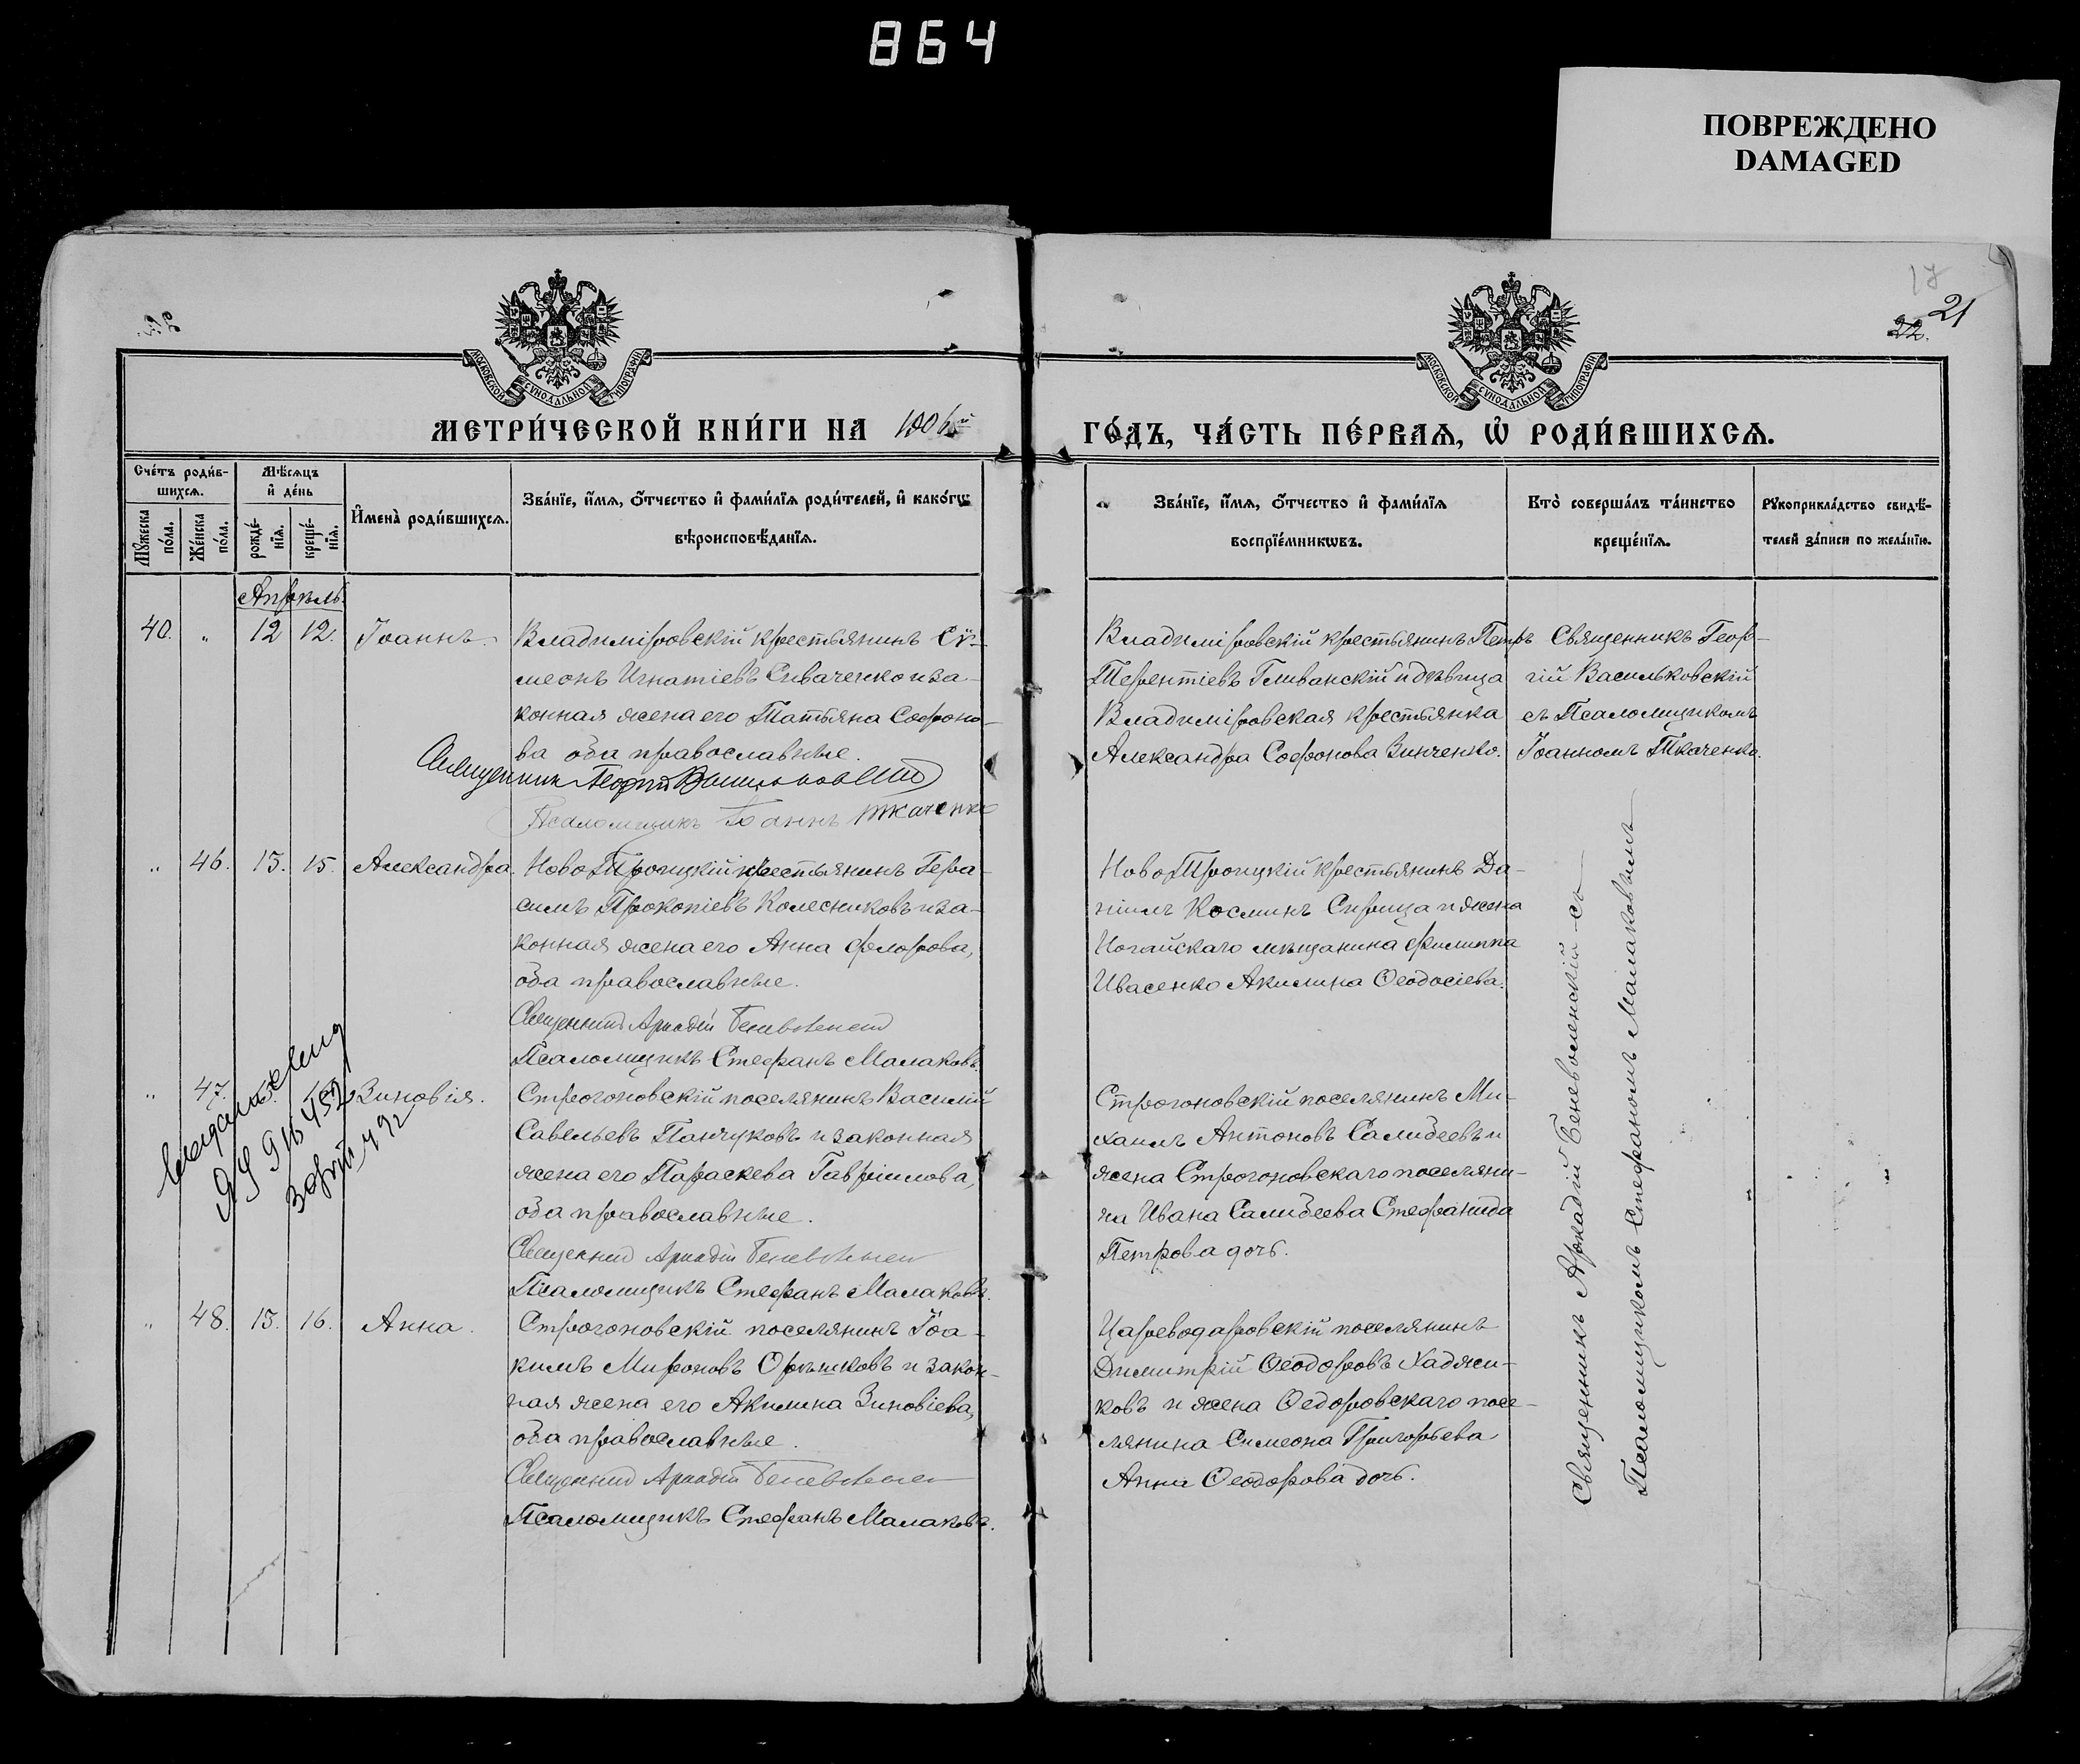 864
ПОВРЕЖДЕНО
DAMAGED
17
22. 21
МОСКОВСКОЙ СѴНОДАЛЬНОЙ ТИПОГРАФІИ
МОСКОВСКОЙ СѴНОДАЛЬНОЙ ТИПОГРАФІИ
МЕТРИ́ЧЕСКОЙ КНИ́ГИ НА 1906й
ГО́ДЪ, ЧА́СТЬ ПЕ́РВАѦ, Ѡ҆ РОДИ́ВШИХСѦ.
Сче́тъ роди́в-
шихсѧ.
Мѣ́сѧцъ
и҆ де́нь
Мꙋ́жеска по́ла.
Же́нска по́ла.
рожде́-
нїѧ.
креще́-
нїѧ.
И҆мена̀ роди́вшихсѧ.
Зва́нїе, и҆́мѧ, ѻ҆́тчество и҆ фами́лїѧ роди́телей, и҆ како́гѡ
вѣроисповѣ́данїѧ.
Зва́нїе, и҆́мѧ, ѻ҆́тчество и҆ фами́лїѧ
воспрїе́мникѡвъ.
Кто̀ соверша́лъ та́инство
креще́нїѧ.
Рꙋкоприкла́дство свидѣ́-
телей за́писи по жела́нїю.
Апрѣль.
40. „ 12 12. Іоаннъ.
Владиміровскій крестьянинъ Сѵ-
меонъ Игнатіевъ Сиваченко и за-
конная жена его Татьяна Софроно-
ва оба православные.
Священникъ Георгій Васильковскій
Псаломщикъ Іоаннъ Ткаченко
Владиміровскій крестьянинъ Петръ
Терентіевъ Гливанскій и дѣвица
Владиміровская крестьянка
Александра Софронова Зинченко.
Священникъ Геор-
гій Васильковскій
съ Псаломщикомъ
Іоанномъ Ткаченко.
„ 46. 15. 15. Александра.
Ново Троицкій крестьянинъ Гера-
симъ Прокопіевъ Колесниковъ и за-
конная жена его Анна Флорова,
оба православные.
Священникъ Аркадій Беневоленскій
Псаломщикъ Стефанъ Малаковъ.
Ново Троицкій крестьянинъ Да-
ніилъ Косминъ Сирица и жена
Ногайскаго мѣщанина Филиппа
Ивасенко Акилина Ѳеодосіева.
„ 47. Зиновія.
Строгоновскій поселянинъ Василій
Савельевъ Панчуковъ и законная
жена его Параскева Гавріилова,
оба православные.
Священникъ Аркадій Беневоленскій
Псаломщикъ Стефанъ Малаковъ.
Строгоновскій поселянинъ Ми-
хаилъ Антоновъ Салибеевъ и
жена Строгоновскаго поселяни-
на Ивана Салибеева Стефанида
Петрова дочь.
„ 48. 15. 16. Анна.
Строгоновскій поселянинъ Іоа-
кимъ Мироновъ Орѣшковъ и закон-
ная жена его Акилина Зиновіева,
оба православные.
Священникъ Аркадій Беневоленскій
Псаломщикъ Стефанъ Малаковъ.
Цареводаровскій поселянинъ
Димитрій Ѳеодоровъ Хаджи-
ковъ и жена Ѳедоровскаго посе-
лянина Симеона Григорьева
Анна Ѳеодорова дочь.
Священникъ Аркадій Беневоленскій съ
Псаломщикомъ Стефаномъ Малаковымъ